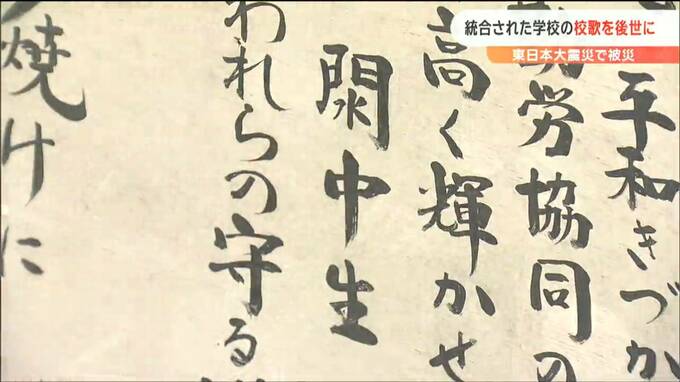 統合された学校の校歌を後世に
東日本大震災で被災
平和きづか
労協同の
高く輝かせ
閖中生
われらの守る
焼けに